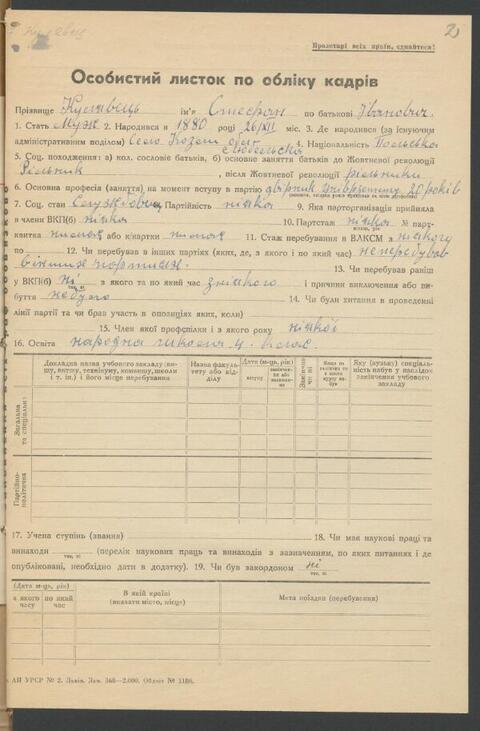 2
Пролетарі всіх країн, єднайтеся!
Особистий листок по обліку кадрів
Прізвище ім'я Стефан по батькові Іванович
1. Стать Муж 2. Народився в 1880 році 26/XII міс. 3. Де народився (за існуючим
адміністративним поділом) Село 4. Національність Польська
5. Соц. походження: а) кол. сословіє батьків, б) основне заняття батьків до Жовтневої революції
Рільник, після Жовтневої революції рільники
6. Основна професія (заняття) на момент вступу в партію двірник 20 років
7. Соц. стан Службовець Партійність ніяка 9. Яка парторганізація прийняла
в члени ВКП(б) ніяка 10. Партстаж ніякий № парт-
квитка або к/картки 11. Стаж перебування в ВЛКСМ з ніякого
по 12. Чи перебував в інших партіях (яких, де, з якого і по який час) не перебував
в інших партіях 13. Чи перебував раніш
у ВКП(б) ні з якого та по який час з ніякого і причини виключення або ви-
буття не було 14. Чи були хитання в проведенні
лінії партії та чи брав участь в опозиціях яких, коли)
15. Член якої профспілки і з якого року ніякої
16. Освіта народна школа 4. клас.
Докладна назва учбового закладу (ви-
шу, втузу, технікуму, комвишу, школи
і т. ін.) і його місце перебування
Назва факуль-
тету або від-
ділу
Дата (м-ць, рік)
вступу
закінчен-
ня або
вибван-
ня
Закінчив
чи ні
Яку (вузьку) спеціаль-
ність набув в наслідок
закінчення учбового
закладу
Загальна
та спеціальна
Партійно-
політична
17. Учена ступінь (звання) 18. Чи має наукові праці та
винаходи (перелік наукових праць та винаходів з зазначенням, по яких питаннях і де
так, ні
опубліковані, необхідно дати в додатку). 19. Чи був закордоном ні
так, ні
(Дата м-ць, рік)
з якого
часу
по який
час
В якій країні
(вказати місто, місце)
Мета поїздки (перебування)
АН УРСР № 2. Львів. Зам. 368—2.000. Обліт № 1186.